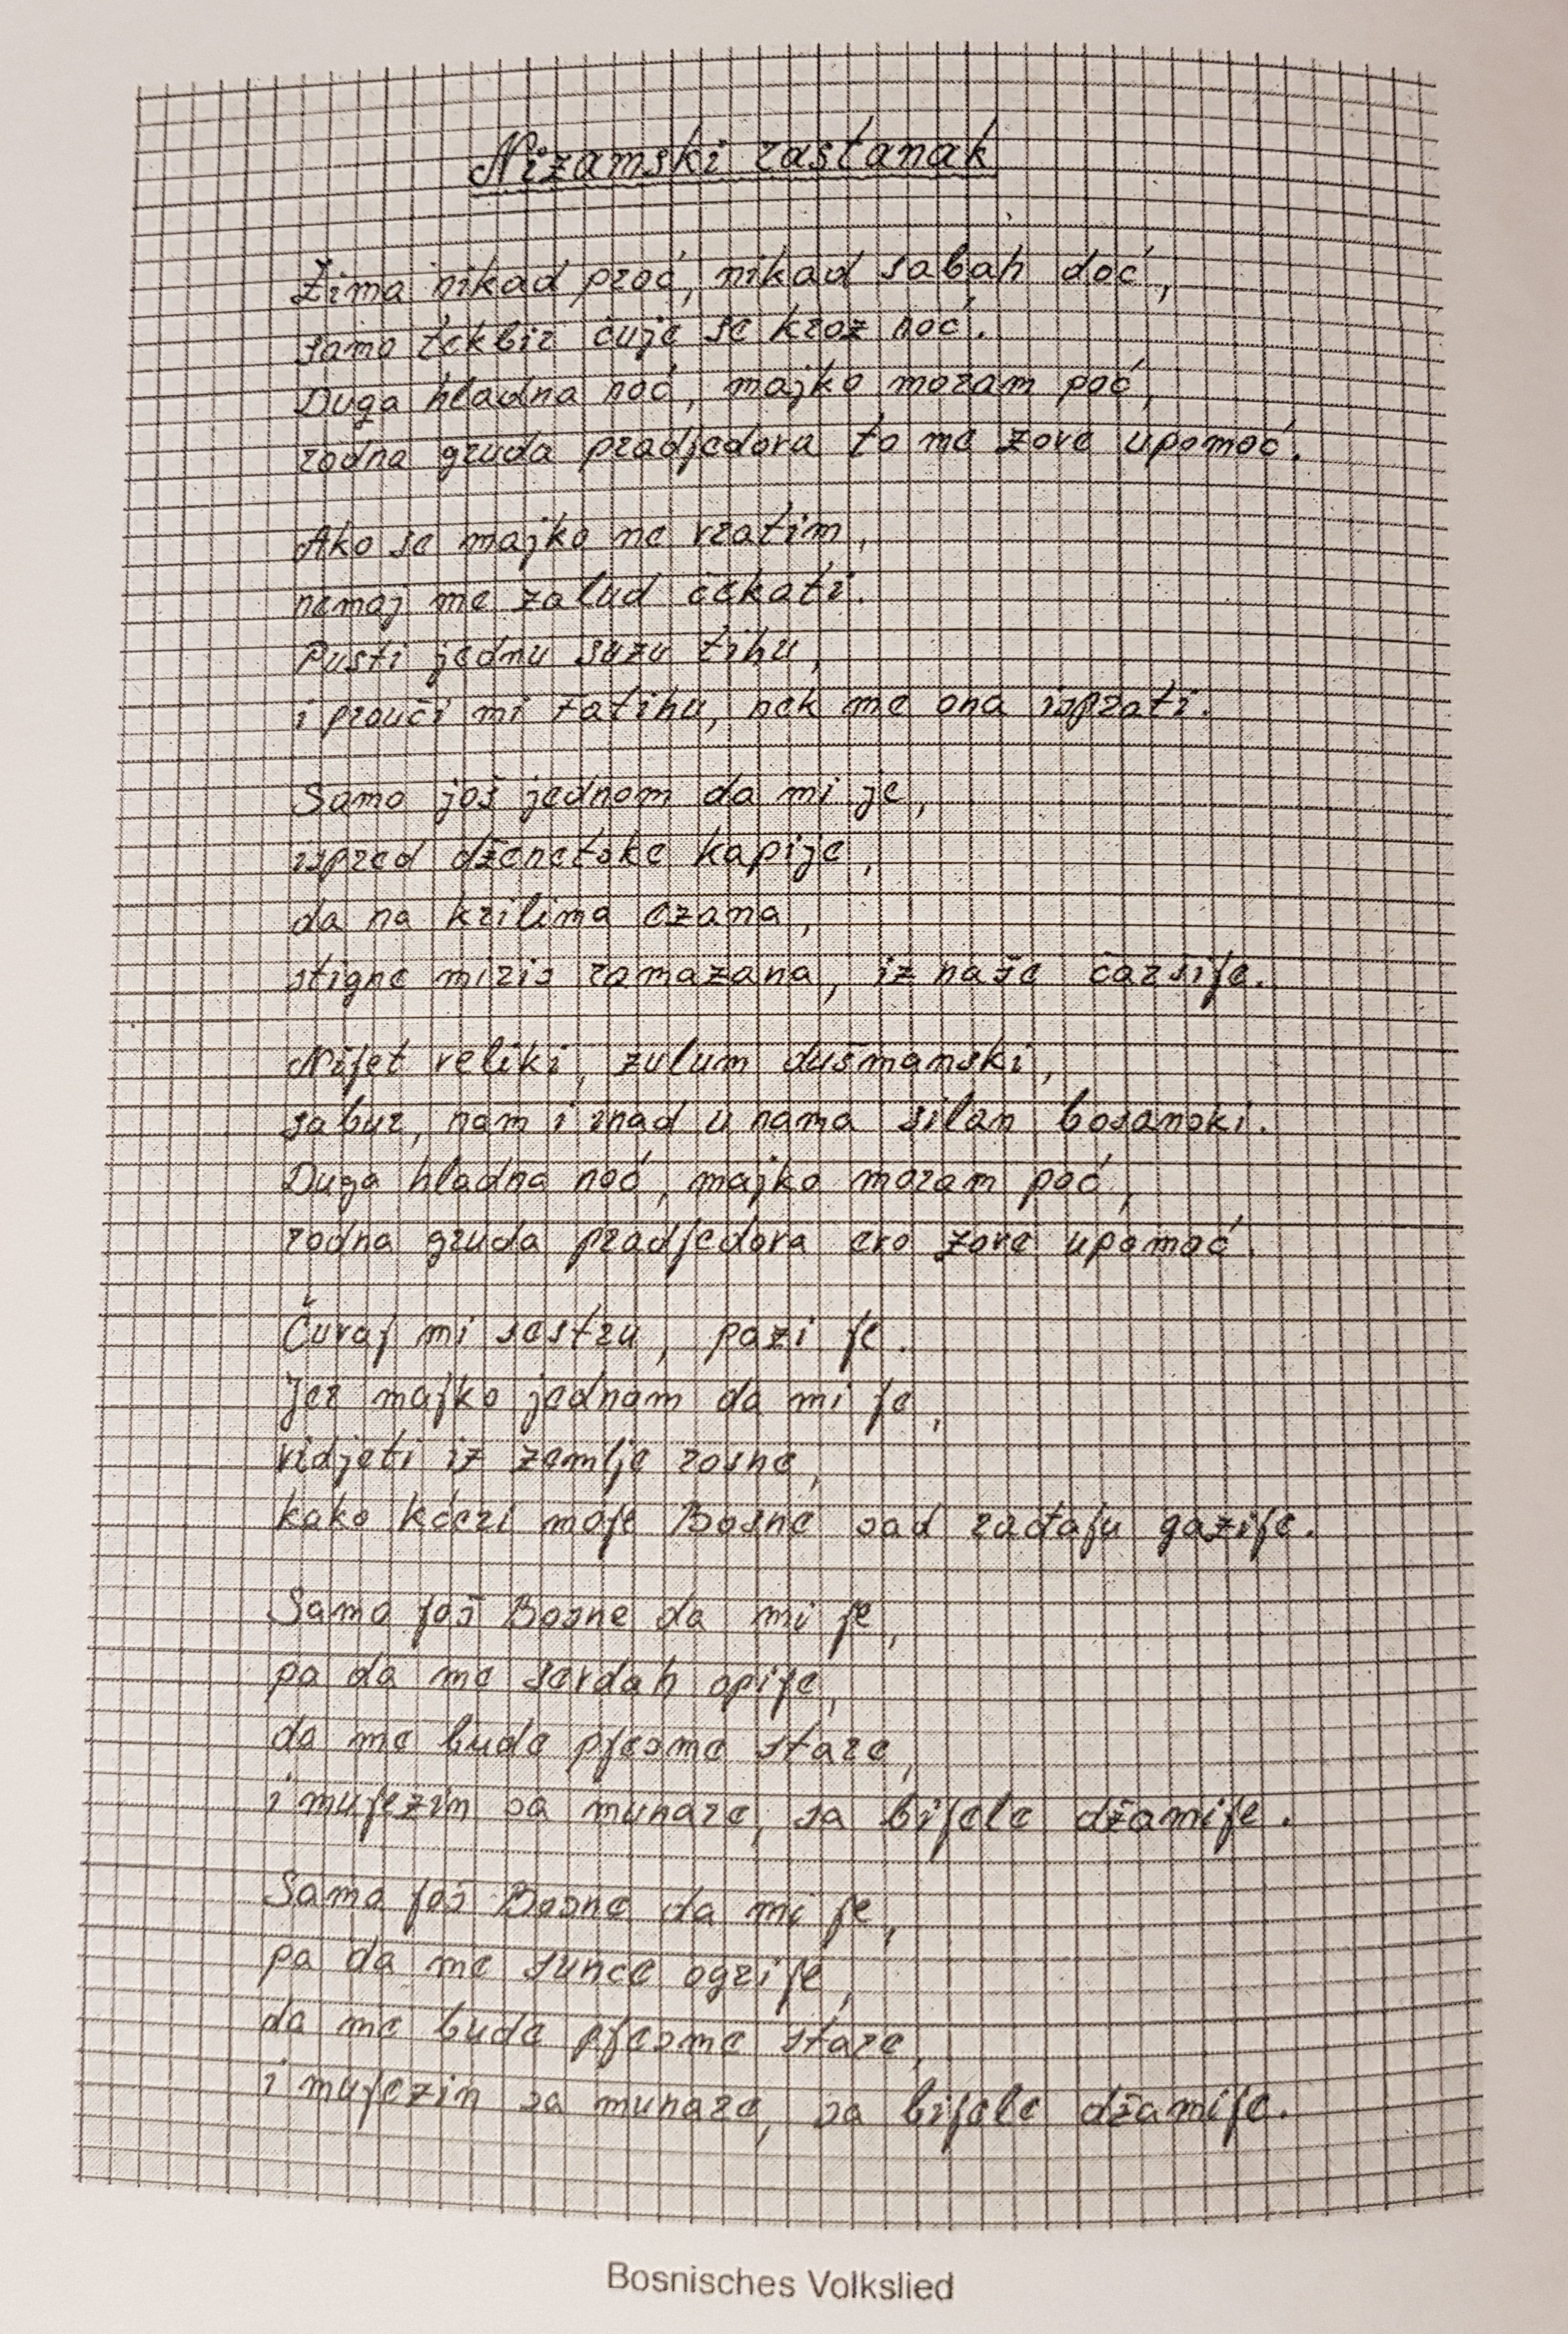 Nizamski rastanak
Zima nikad proć, nikad sabah doć,
samo tekbir čuje se kroz noć.
Duga hladna noć, majko moram poć,
rodna gruda pradjedova to me zove upomoć.
Ako se majko ne vratim,
nemaj me zalud čekati.
Pusti jednu suzu tihu,
i prouči mi Fatihu, nek me ona isprati.
Samo još jednom da mi je,
ispred dženetske kapije,
da na krilima ezana,
stigne miris ramazana, iz naše čaršije.
Nijet veliki, zulum dušmanski,
sabur, nam i inad u nama silan bosanski.
Duga hladna noć, majko moram poć,
rodna gruda pradjedova evo zove upomoć.
Čuvaj mi sestru, pazi je.
Jer majko jednom da mi je,
vidjeti iz zemlje rosne,
kako kćeri moje Bosne sad rađaju gazije.
Samo još Bosne da mi je,
pa da me sevdah opije,
da me bude pjesme stare,
i mujezin sa munare, sa bijele džamije.
Samo još Bosne da mi je,
pa da me sunce ogrije,
da me bude pjesme stare,
i mujezin sa munare, sa bijele džamije.
Bosnisches Volkslied